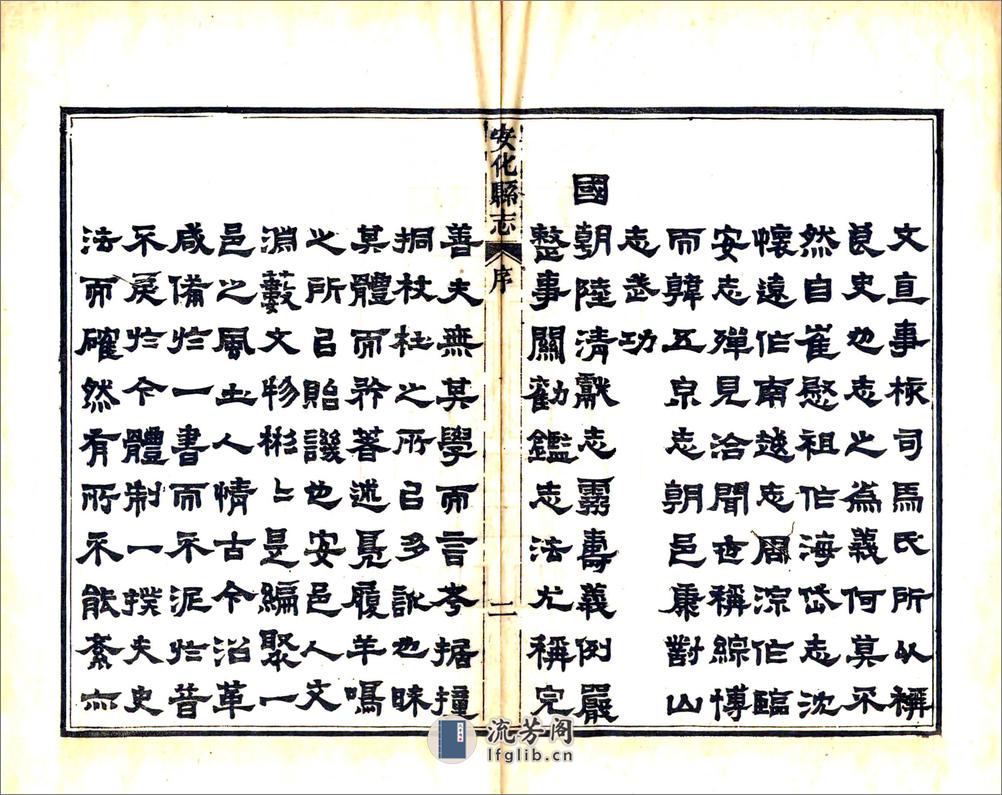 文直事核司馬氏所以稱
良史也志之爲義何莫不
然自崔慰祖作海岱志沈
懷遠作南越志周淙作臨
安志殫見洽聞世稱綜博
而韓五泉志朝邑康對山
志武功
國朝陸清獻志靈壽義例嚴
整事關勸鑑志法尤稱完
安化縣志 序 二
善夫無其學而言考據撞
挏杖杜之所㠯多訛也昧
其體而矜著述鳧履羊鳴
之所㠯貽譏也安邑人文
淵藪文物彬〻是編聚一
邑之風土人情古今沿革
咸備於一書而不泥於昔
不戾於今體制一揆夫史
法而確然有所不能紊而
流芳阁
lfglib.cn